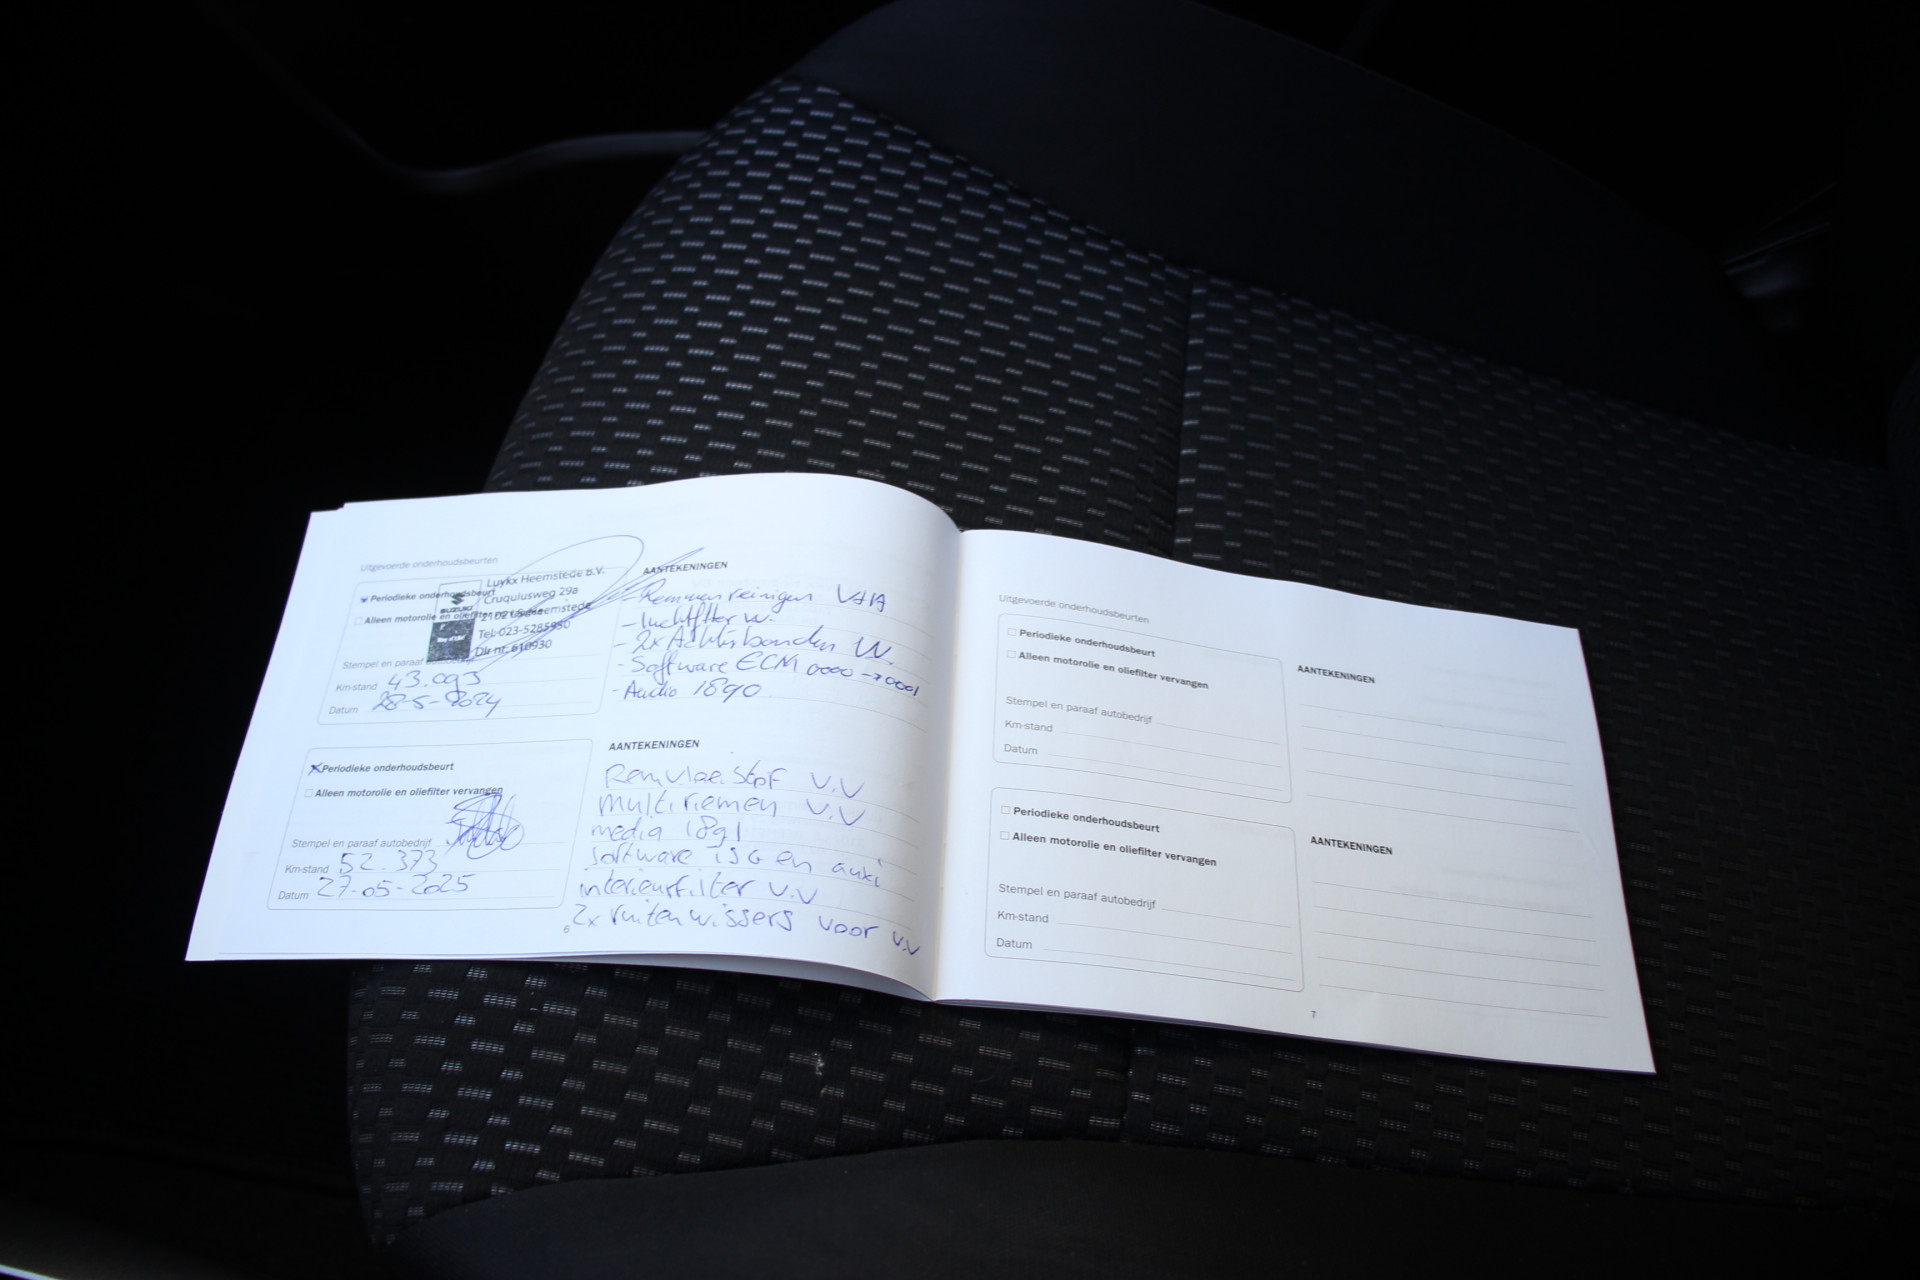 Uitgevoerde onderhoudsbeurten
Periodieke onderhoudsbeurt
Alleen motorolie en oliefilter
SUZUKI
Luykx Heemstede B.V.
Cruquiusweg 29a
Heemstede
Tel: 023-5285550
Dlr nr. 610930
Stempel en paraaf
Km-stand 43.093
Datum 28-5-2024
AANTEKENINGEN
- Remmen reinigen V+A
- luchtfilter W.
- 2x Achterbanden W.
- Software ECM 0000 → 0001
- Audio 1890
Periodieke onderhoudsbeurt
Alleen motorolie en oliefilter vervangen
Stempel en paraaf autobedrijf
Km-stand 52.373
Datum 27-05-2025
AANTEKENINGEN
Remvloeistof V.V
multiriemen V.V
media 1891
software ISG en
interieurfilter V.V
2x ruitenwissers voor V.V
6
Uitgevoerde onderhoudsbeurten
Periodieke onderhoudsbeurt
Alleen motorolie en oliefilter vervangen
Stempel en paraaf autobedrijf
Km-stand
Datum
AANTEKENINGEN
Periodieke onderhoudsbeurt
Alleen motorolie en oliefilter vervangen
Stempel en paraaf autobedrijf
Km-stand
Datum
AANTEKENINGEN
7